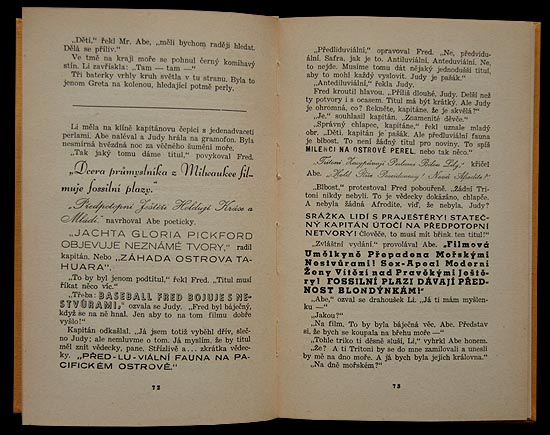 „Děti,“ řekl Mr. Abe, „měli bychom raději hledat.
Dělá se příliv.“
Ve tmě na kraji moře se pohnul černý komíhavý
stín. Li zavřískla: „Tam — tam —“
Tři baterky vrhly kruh světla v tu stranu. Byla to
jenom Greta na kolenou, hledající potmě perly.
Li měla na klíně kapitánovu čepici s jedenadvaceti
perlami. Abe naléval a Judy hrála na gramofon. Byla
nesmírná hvězdná noc za věčného šumění moře.
„Tak jaký tomu dáme titul,“ povykoval Fred.
„Dcera průmyslníka z Milwaukee fil-
muje fossilní plazy.“
„Předpotopní Ještěři Holdují Kráse a
Mládí,“ navrhoval Abe poeticky.
„JACHTA GLORIA PICKFORD
OBJEVUJE NEZNÁMÉ TVORY,“ radil
kapitán. Nebo „ZÁHADA OSTROVA TA-
HUARA.“
„To by byl jenom podtitul,“ řekl Fred. „Titul musí
říkat něco víc.“
„Třeba: BASEBALL FRED BOJUJE S NE-
STVŮRAMI,“ ozvala se Judy. „Fred byl báječný,
když se na ně hnal. Jen aby to na tom filmu dobře
vyšlo!“
Kapitán odkašlal. „Já jsem totiž vyběhl dřív, sleč-
no Judy; ale nemluvme o tom. Já myslím, že by titul
měl znít vědecky, pane. Střízlivě a... zkrátka vědec-
ky. „PŘED-LU-VIÁLNÍ FAUNA NA PA-
CIFICKÉM OSTROVĚ.“
72
„Předliduviální,“ opravoval Fred. „Ne, předvidu-
ální. Safra, jak je to. Antiluviální. Anteduviální. Ne,
to nejde. Musíme tomu dát nějaký jednodušší titul,
aby to mohl každý vyslovit. Judy je pašák.“
„Antediluviální,“ řekla Judy.
Fred kroutil hlavou. „Příliš dlouhé, Judy. Delší než
ty potvory i s ocasem. Titul má být kratký. Ale Judy
je ohromná, co? Řekněte, kapitáne, že je ohromná.“
„Je,“ souhlasil kapitán. „Znamenité děvče.“
„Správný chlapec, kapitáne,“ řekl uznale mladý
obr. „Děti, kapitán je pašák. Ale předluviální fauna
je blbost. To není žádný titul pro noviny. To spíš
MILENCI NA OSTROVĚ PEREL, nebo tak něco.“
„Tritoni Zasypávají Perlami Bílou Lily,“ křičel
Abe. „Hold Říše Poseidonovy! Nová Afrodite!“
„Blbost,“ protestoval Fred pobouřeně. „Žádní Tri-
toni nikdy nebyli. To je vědecky dokázáno, chlapče.
A nebyla žádná Afrodite, viď, že nebyla, Judy?
SRÁŽKA LIDÍ S PRAJEŠTĚRY! STATEČ-
NÝ KAPITÁN ÚTOČÍ NA PŘEDPOTOPNÍ
NETVORY! člověče, to musí mít břink ten titul!“
„Zvláštní vydání,“ provolával Abe. „Filmová
Umělkyně Přepadena Mořskými
Nestvůrami! Sex-Apeal Moderní
Ženy Vítězí nad Pravěkými Ještě-
ry! FOSSILNÍ PLAZI DÁVAJÍ PŘED-
NOST BLONDÝNKÁM!“
„Abe,“ ozval se drahoušek Li. „Já ti mám myšlen-
ku —“
„Jakou?“
„Na film. To by byla báječná věc, Abe. Představ
si, že bych se koupala na břehu moře —“
„Tohle triko ti děsně sluší, Li,“ vyhrkl Abe honem.
„Že? A ti Tritoni by se do mne zamilovali a unesli
by mě na dno moře. A já bych byla jejich královna.“
„Na dně mořském?“
73